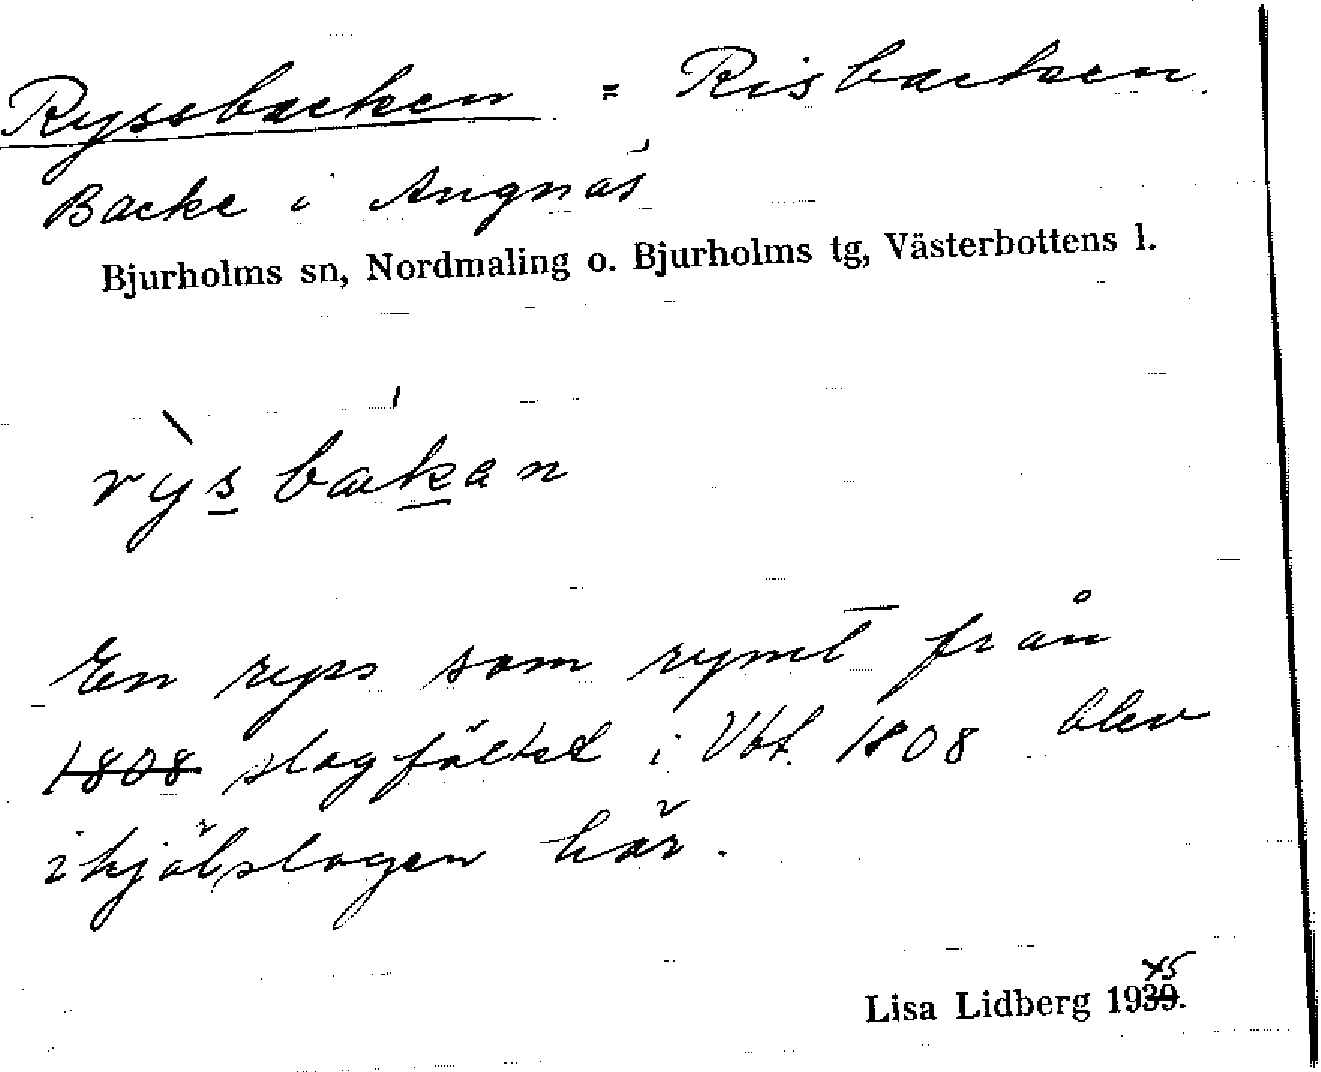 Ryssbacken = Risbacken.
Backe i Angnäs
Bjurholms sn, Nordmaling o. Bjurholms tg, Västerbottens l.
rỳsbakan
En ryss som rymt från
1808 slagfältet i Vbt. 1808 blev
ihjälslagen här.
45
Lisa Lidberg 1939.